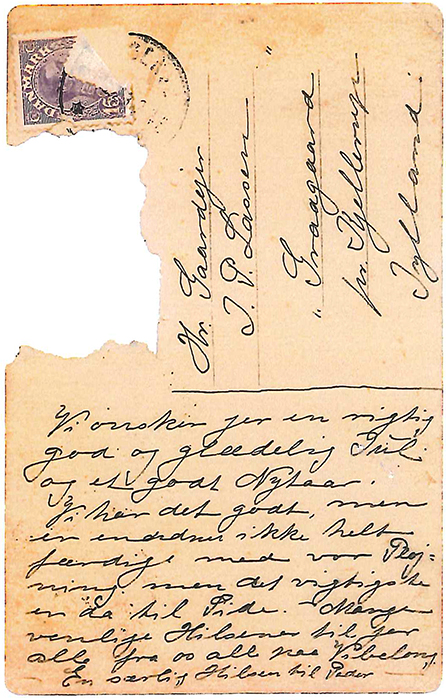 DANMARK
15
Hr. Gaardejer
J. P. Lassen
"Graagaard"
pr Kjellerup
Jylland.
Vi ønsker jer en rigtig
god og glædelig Jul
og et godt Nytaar.
Vi har det godt, men
er endnu ikke helt
færdige med vor Pløj-
ning, men det vigtigste
er da til Side. - Mange
venlige Hilsener til jer
alle fra os alle paa
En særlig Hilsen til Peder